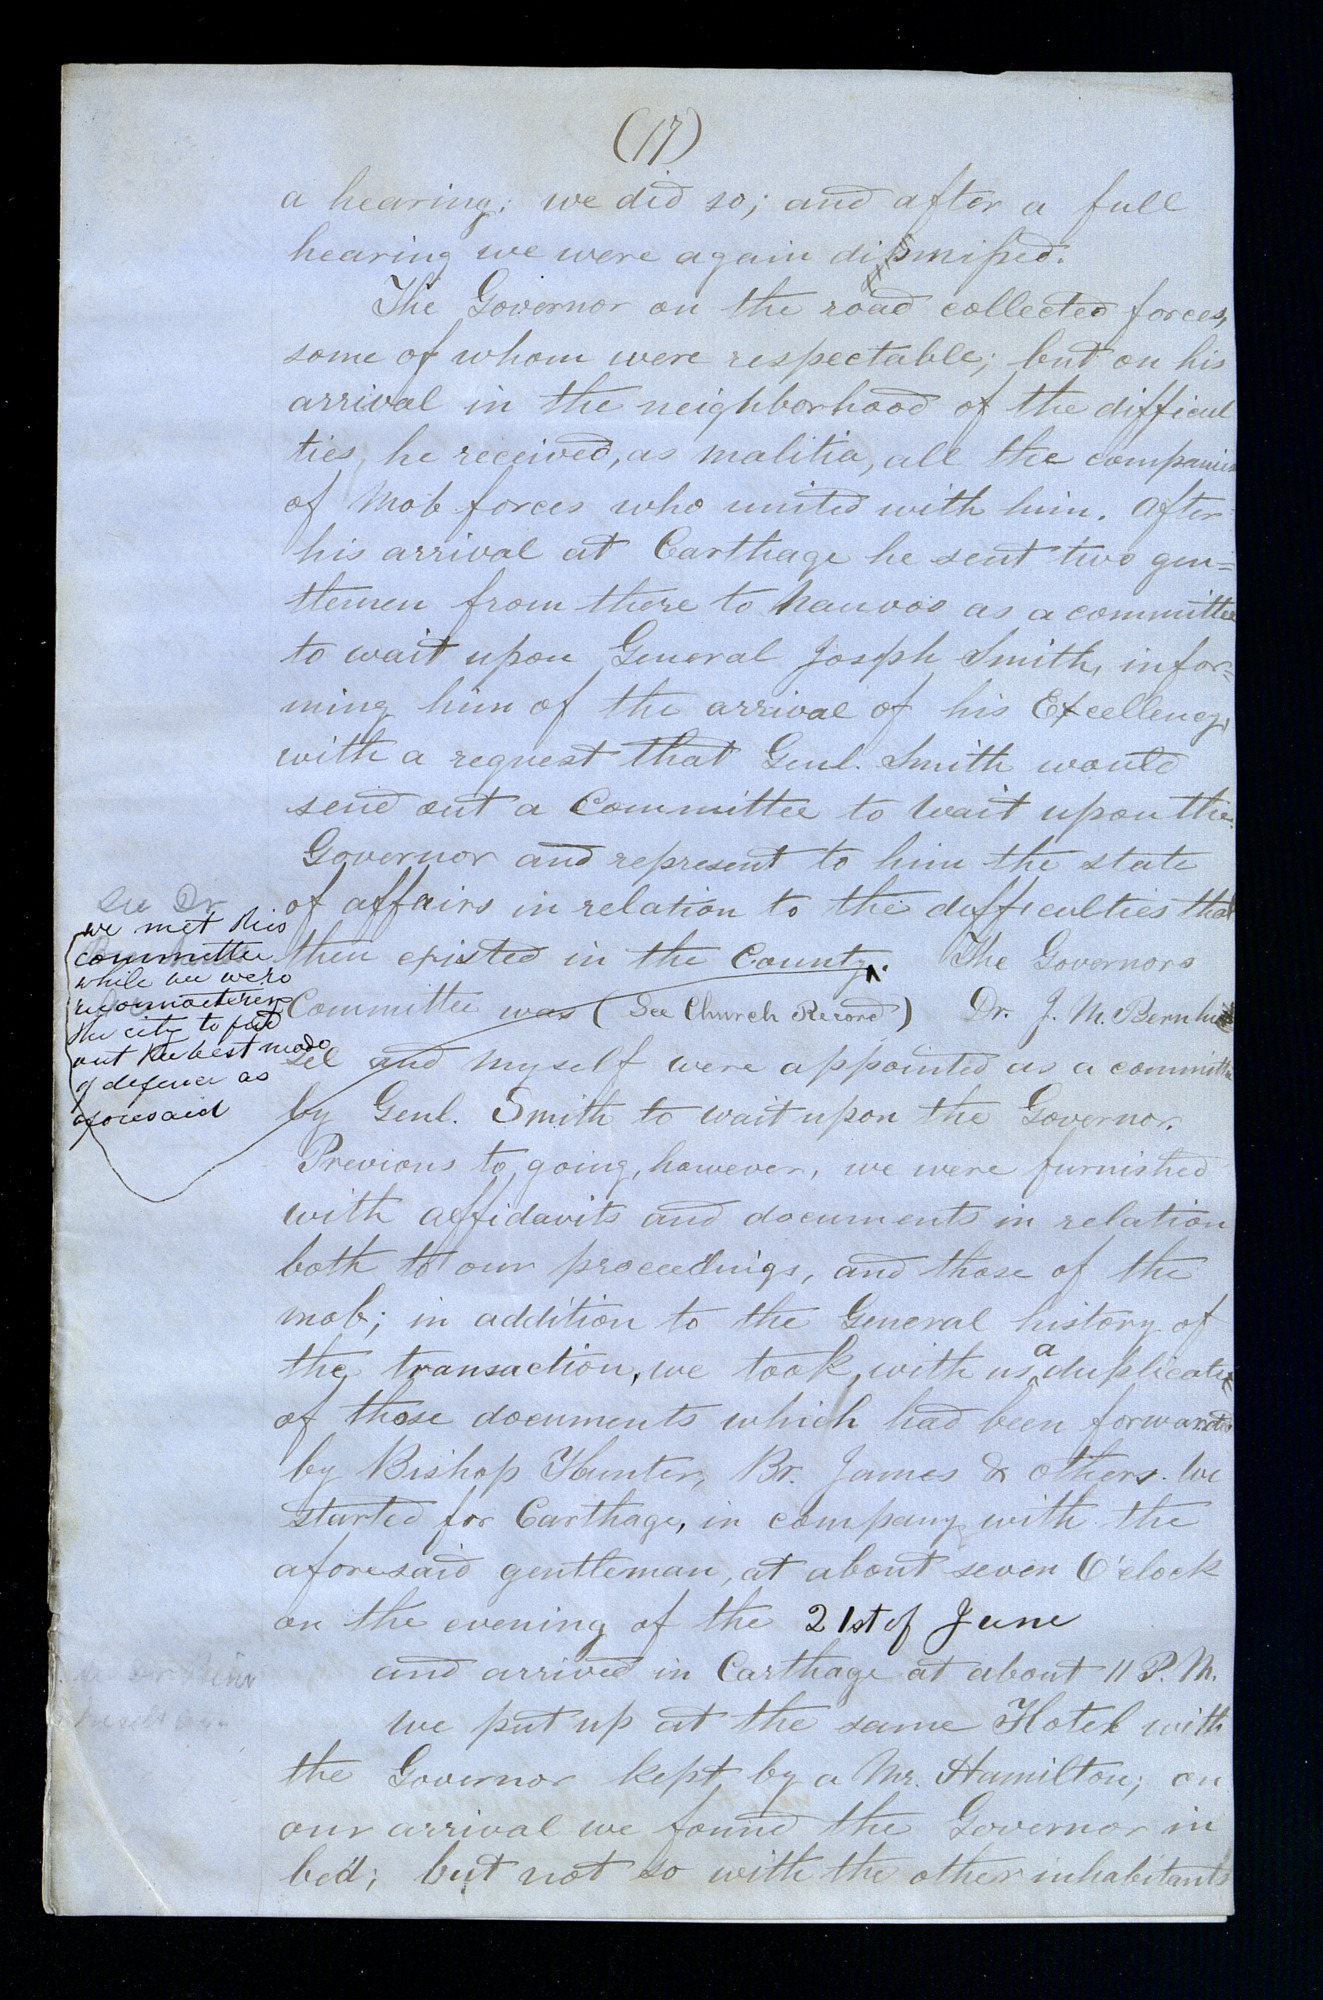 (17)
a hearing; we did so; and after a full
hearing we were again dismissed.
The Governor on the road collected forces,
some of whom were respectable; but on his
arrival in the neighborhood of the difficul
ties, he received, as malitia, all the companies
of Mob forces who united with him. After
his arrival at Carthage he sent two gen=
tlemen from there to Nauvoo as a committee
to wait upon General Joseph Smith, infor=
ming him of the arrival of his Excellency,
with a request that Genl. Smith would
send out a Committee to wait upon the
Governor and represent to him the state
of affairs in relation to the difficulties that
then existed in the County. The Governors
Committee was (See Church Record) Dr. J. M. Bernhi
sel and myself were appointed as a committee
by Genl. Smith to wait upon the Governor.
Previous to going, however, we were furnished
with affidavits and documents in relation
both to our proceedings, and those of the
mob; in addition to the General history of
the transaction, we took with us a duplicate
of those documents which had been forwarded
by Bishop Hunter, Br. James & others. We
started for Carthage, in company with the
aforesaid gentleman, at about seven O'clock
on the evening of the 21st of June
and arrived in Carthage at about 11 P. M.
we put up at the same Hotel with
the Governor kept by a Mr. Hamilton; on
our arrival we found the Governor in
bed; but not so with the other inhabitants
See Dr
we met this
committee
while we were
reconnoitering
the city to find
out the best mode
of defence as
aforesaid